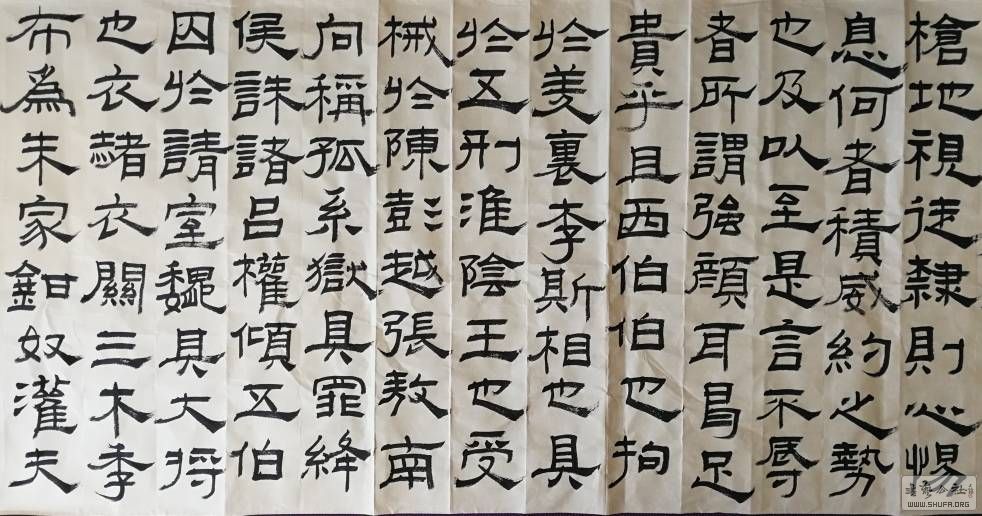 槍地視徒隸則心惕
息何者積威約之勢
也及以至是言不辱
者所謂強顏耳曷足
貴乎且西伯伯也拘
於羑裏李斯相也具
於五刑淮陰王也受
械於陳彭越張敖南
向稱孤系獄具罪絳
侯誅諸呂權傾五伯
囚於請室魏其大将
也衣赭衣關三木季
布爲朱家鉗奴灌夫
WWW.SHUFA.ORG